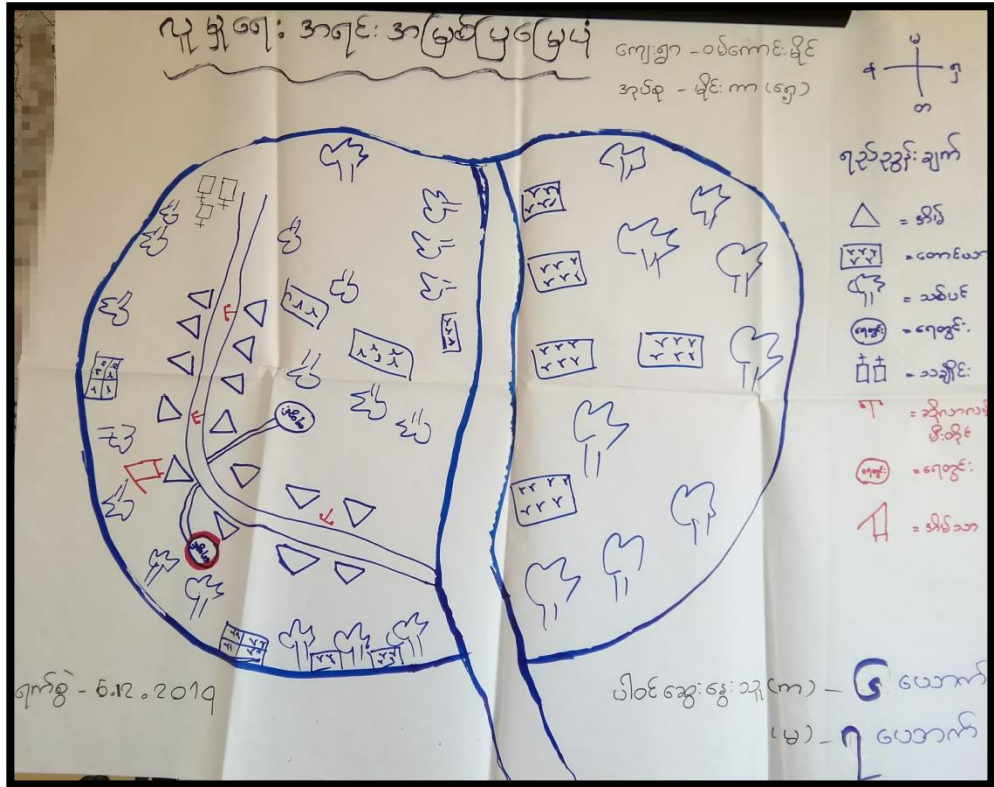 လူမှုရေး အရင်းအမြစ်ပြမြေပုံ
ကျေးရွာ - ဝမ်ကောင်းမိုင်
အုပ်စု - မိုင်းကာ (ရှေ့)
မ
န ရှ
တ
ရည်ညွှန်းချက်
= အိမ်
= တောင်ယာ
= သစ်ပင်
ရေတွင်း = ရေတွင်း
= သချႋုင်း
= ဆိုလာလမ်း
မီးတိုင်
ရေတွင်း = ရေတွင်း
= အိမ်သာ
ရေတွင်း
ရေတွင်း
ရက်စွဲ - 5.12.2019
ပါဝင်ဆွေးနွေးသူ (ကာ) - ၆ ယောက်
(မ) - ၇ ယောက်